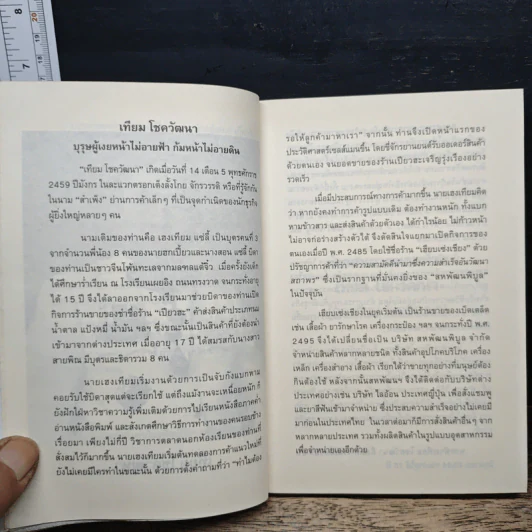 8
7
20
เทียม โชควัฒนา
บุรุษผู้เงยหน้าไม่อายฟ้า ก้มหน้าไม่อายดิน
"เทียม โชควัฒนา" เกิดเมื่อวันที่ 14 เดือน 5 พุทธศักราช
2459 ปีมังกร ในละแวกตรอกเต็งลั้งโกย จักรวรรดิ หรือที่รู้จักกัน
ในนาม "สำเพ็ง" ย่านการค้าเล็กๆ ที่เป็นจุดกำเนิดของนักธุรกิจ
ผู้ยิ่งใหญ่หลายๆ คน
นามเดิมของท่านคือ เฮงเทียม แซ่ลี้ เป็นบุตรคนที่ 3
จากจำนวนพี่น้อง 8 คนของนายฮกเปี้ยและนางสอน แซ่ลี้ บิดา
ของท่านเป็นชาวจีนโพ้นทะเลจากมณฑลแต้จิ๋ว เมื่อครั้งยังเด็ก
ได้ศึกษาร่ำเรียน ณ โรงเรียนเผยอิง ถนนทรงวาด จนกระทั่งอายุ
ได้ 15 ปี จึงได้ลาออกจากโรงเรียนมาช่วยบิดาของท่านเปิด
กิจการร้านขายของชำชื่อร้าน "เปียวฮะ" ค้าส่งสินค้าประเภทนม
น้ำตาล แป้งหมี่ น้ำมัน ฯลฯ ซึ่งขณะนั้นเป็นสินค้าที่ยังต้องนำ
เข้ามาจากต่างประเทศ เมื่ออายุ 17 ปี ได้สมรสกับนางสาว
สายพิณ มีบุตรและธิดารวม 8 คน
นายเฮงเทียมเริ่มงานด้วยการเป็นจับกังแบกหาม
คอยรับใช้บิดาสุดแต่จะเรียกใช้ แต่ถึงแม้งานจะเหนื่อยหนัก ก็
ยังฝักใฝ่หาวิชาความรู้เพิ่มเติมด้วยการไปเรียนหนังสือภาคค่ำ
อ่านหนังสือพิมพ์ และสังเกตศึกษาวิธีการทำงานของคนรอบข้าง
เรื่อยมา เพียงไม่กี่ปี วิชาการตลาดนอกห้องเรียนของท่านที่
สั่งสมไว้ก็มากขึ้น นายเฮงเทียมเริ่มต้นทดลองการค้าแนวใหม่ที่
ยังไม่เคยมีใครทำในขณะนั้น ด้วยการตั้งคำถามที่ว่า "ทำไมต้อง
รอให้ลูกค้ามาหาเรา" จากนั้น ท่านจึงเปิดหน้าแรกของ
ประวัติศาสตร์เซลส์แมนขึ้น โดยขี่จักรยานยนต์รับออเดอร์สินค้า
ด้วยตนเอง จนยอดขายของร้านเปียวฮะเจริญรุ่งเรืองอย่าง
รวดเร็ว
เมื่อมีประสบการณ์ทางการค้ามากขึ้น นายเฮงเทียมคิด
ว่า หากยังคงทำการค้ารูปแบบเดิม ต้องทำงานหนัก ทั้งแบก
หามข้าวสาร และส่งสินค้าด้วยตัวเอง ได้กำไรน้อย ไม่ก้าวหน้า
ไม่อาจก่อร่างสร้างตัวได้ จึงตัดสินใจแยกมาเปิดกิจการของ
ตนเองเมื่อปี พ.ศ. 2485 โดยใช้ชื่อร้าน "เฮียบเซ่งเชียง" ด้วย
ปรัชญาการค้าที่ว่า "ความสามัคคีนำมาซึ่งความสำเร็จอันวัฒนา
สถาพร" ซึ่งเป็นรากฐานที่มั่นคงยิ่งของ "สหพัฒนพิบูล"
ในปัจจุบัน
เฮียบเซ่งเชียงในยุคเริ่มต้น เป็นร้านขายของเบ็ดเตล็ด
เช่น เสื้อผ้า ยารักษาโรค เครื่องกระป๋อง ฯลฯ จนกระทั่งปี พ.ศ.
2495 จึงได้เปลี่ยนชื่อเป็น บริษัท สหพัฒนพิบูล จำกัด
จำหน่ายสินค้าหลากหลายชนิด ทั้งสินค้าอุปโภคบริโภค เครื่อง
เหล็ก เครื่องสำอาง เสื้อผ้า เรียกได้ว่าขายทุกอย่างที่มนุษย์ต้อง
กินต้องใช้ หลังจากนั้นสหพัฒนฯ จึงได้ติดต่อกับบริษัทต่าง
ประเทศอย่างเช่น บริษัท ไลอ้อน ประเทศญี่ปุ่น เพื่อสั่งแชมพู
และยาสีฟันเข้ามาจำหน่าย ซึ่งประสบความสำเร็จอย่างไม่เคยมี
มาก่อนในประเทศไทย ในเวลาต่อมาก็มีการสั่งสินค้าอื่นๆ จาก
หลากหลายประเทศ รวมทั้งผลิตสินค้าในรูปแบบอุตสาหกรรม
เพื่อจำหน่ายเองอีกด้วย